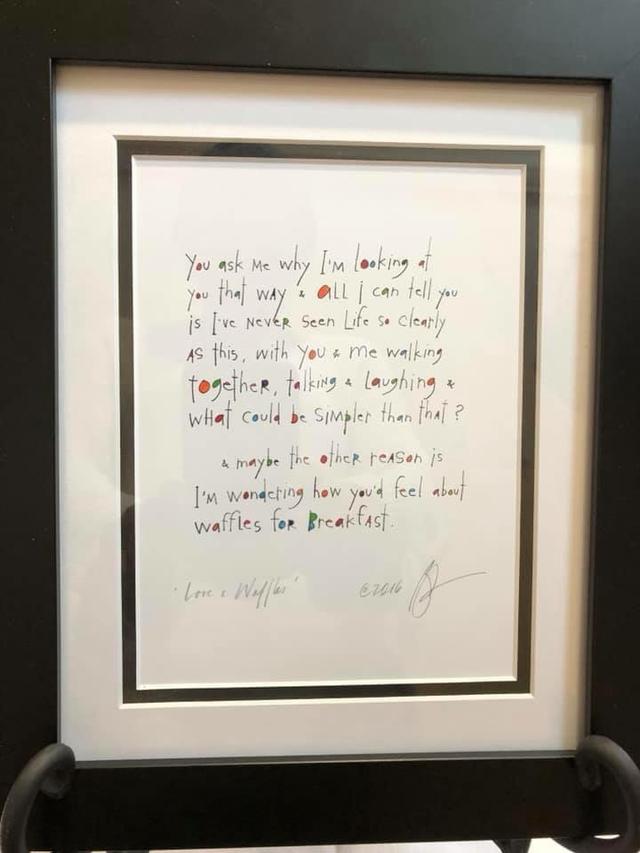 You ask Me why I'M looking at
you that WAY & all i can tell you
is I've NEVER Seen Life So clearly
AS this, with You & me walking
togetheR, talKiNg & Laughing &
WHat could be SiMpler than that ?
& maybe the otheR reASon is
I'M wondering how you'd feel about
waffles foR BreakfAST.
'Love & Waffles' ©2016